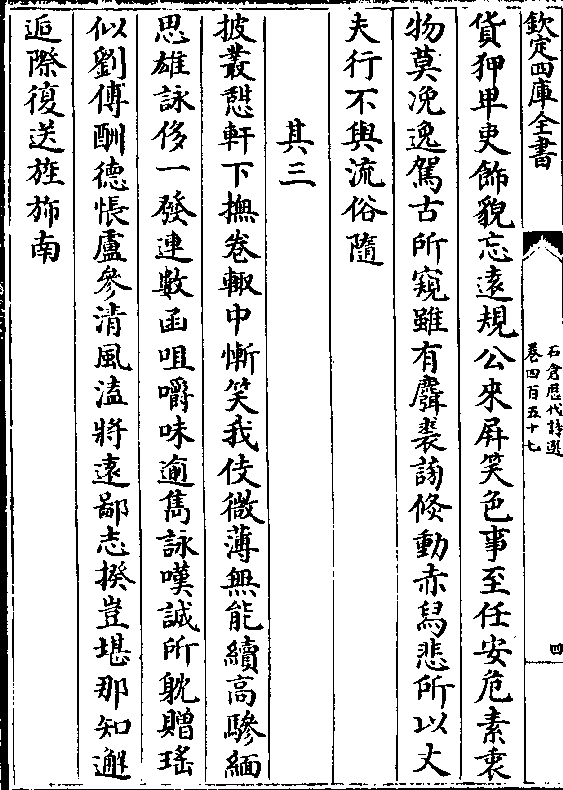 欽定四庫全書
石倉歷代詩選
卷四百五十七
四
貨狎卑吏飾貌忘遠規公來屏笑色事至任安危素衷
物莫凂逸駕古所窺雖有麛裘謗倐動赤舄悲所以丈
夫行不與流俗隨
其三
披叢憇軒下撫卷輙中慚笑我伎微薄無能續高驂緬
思雄詠侈一發連數函咀嚼味逾雋詠嘆誠所躭贈瑶
似劉傅酬德悵盧參清風溘將遠鄙志揆豈堪那知邂
逅際復送旌斾南